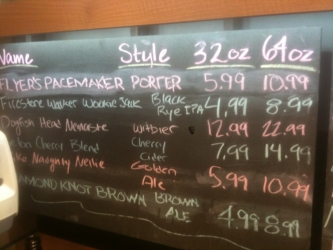 Name Style 32oz 64oz
FLYER'S PACEMAKER PORTER 5.99 10.99
Firestone Walker Wookie Jack Black Rye IPA 4.99 8.99
Dogfish Head Namaste Witbier 12.99 22.99
Cherry Blend Cherry Cider 7.99 14.99
Naughty Nellie Golden Ale 5.99 10.99
DIAMOND KNOT BROWN BROWN ALE 4.99 8.99